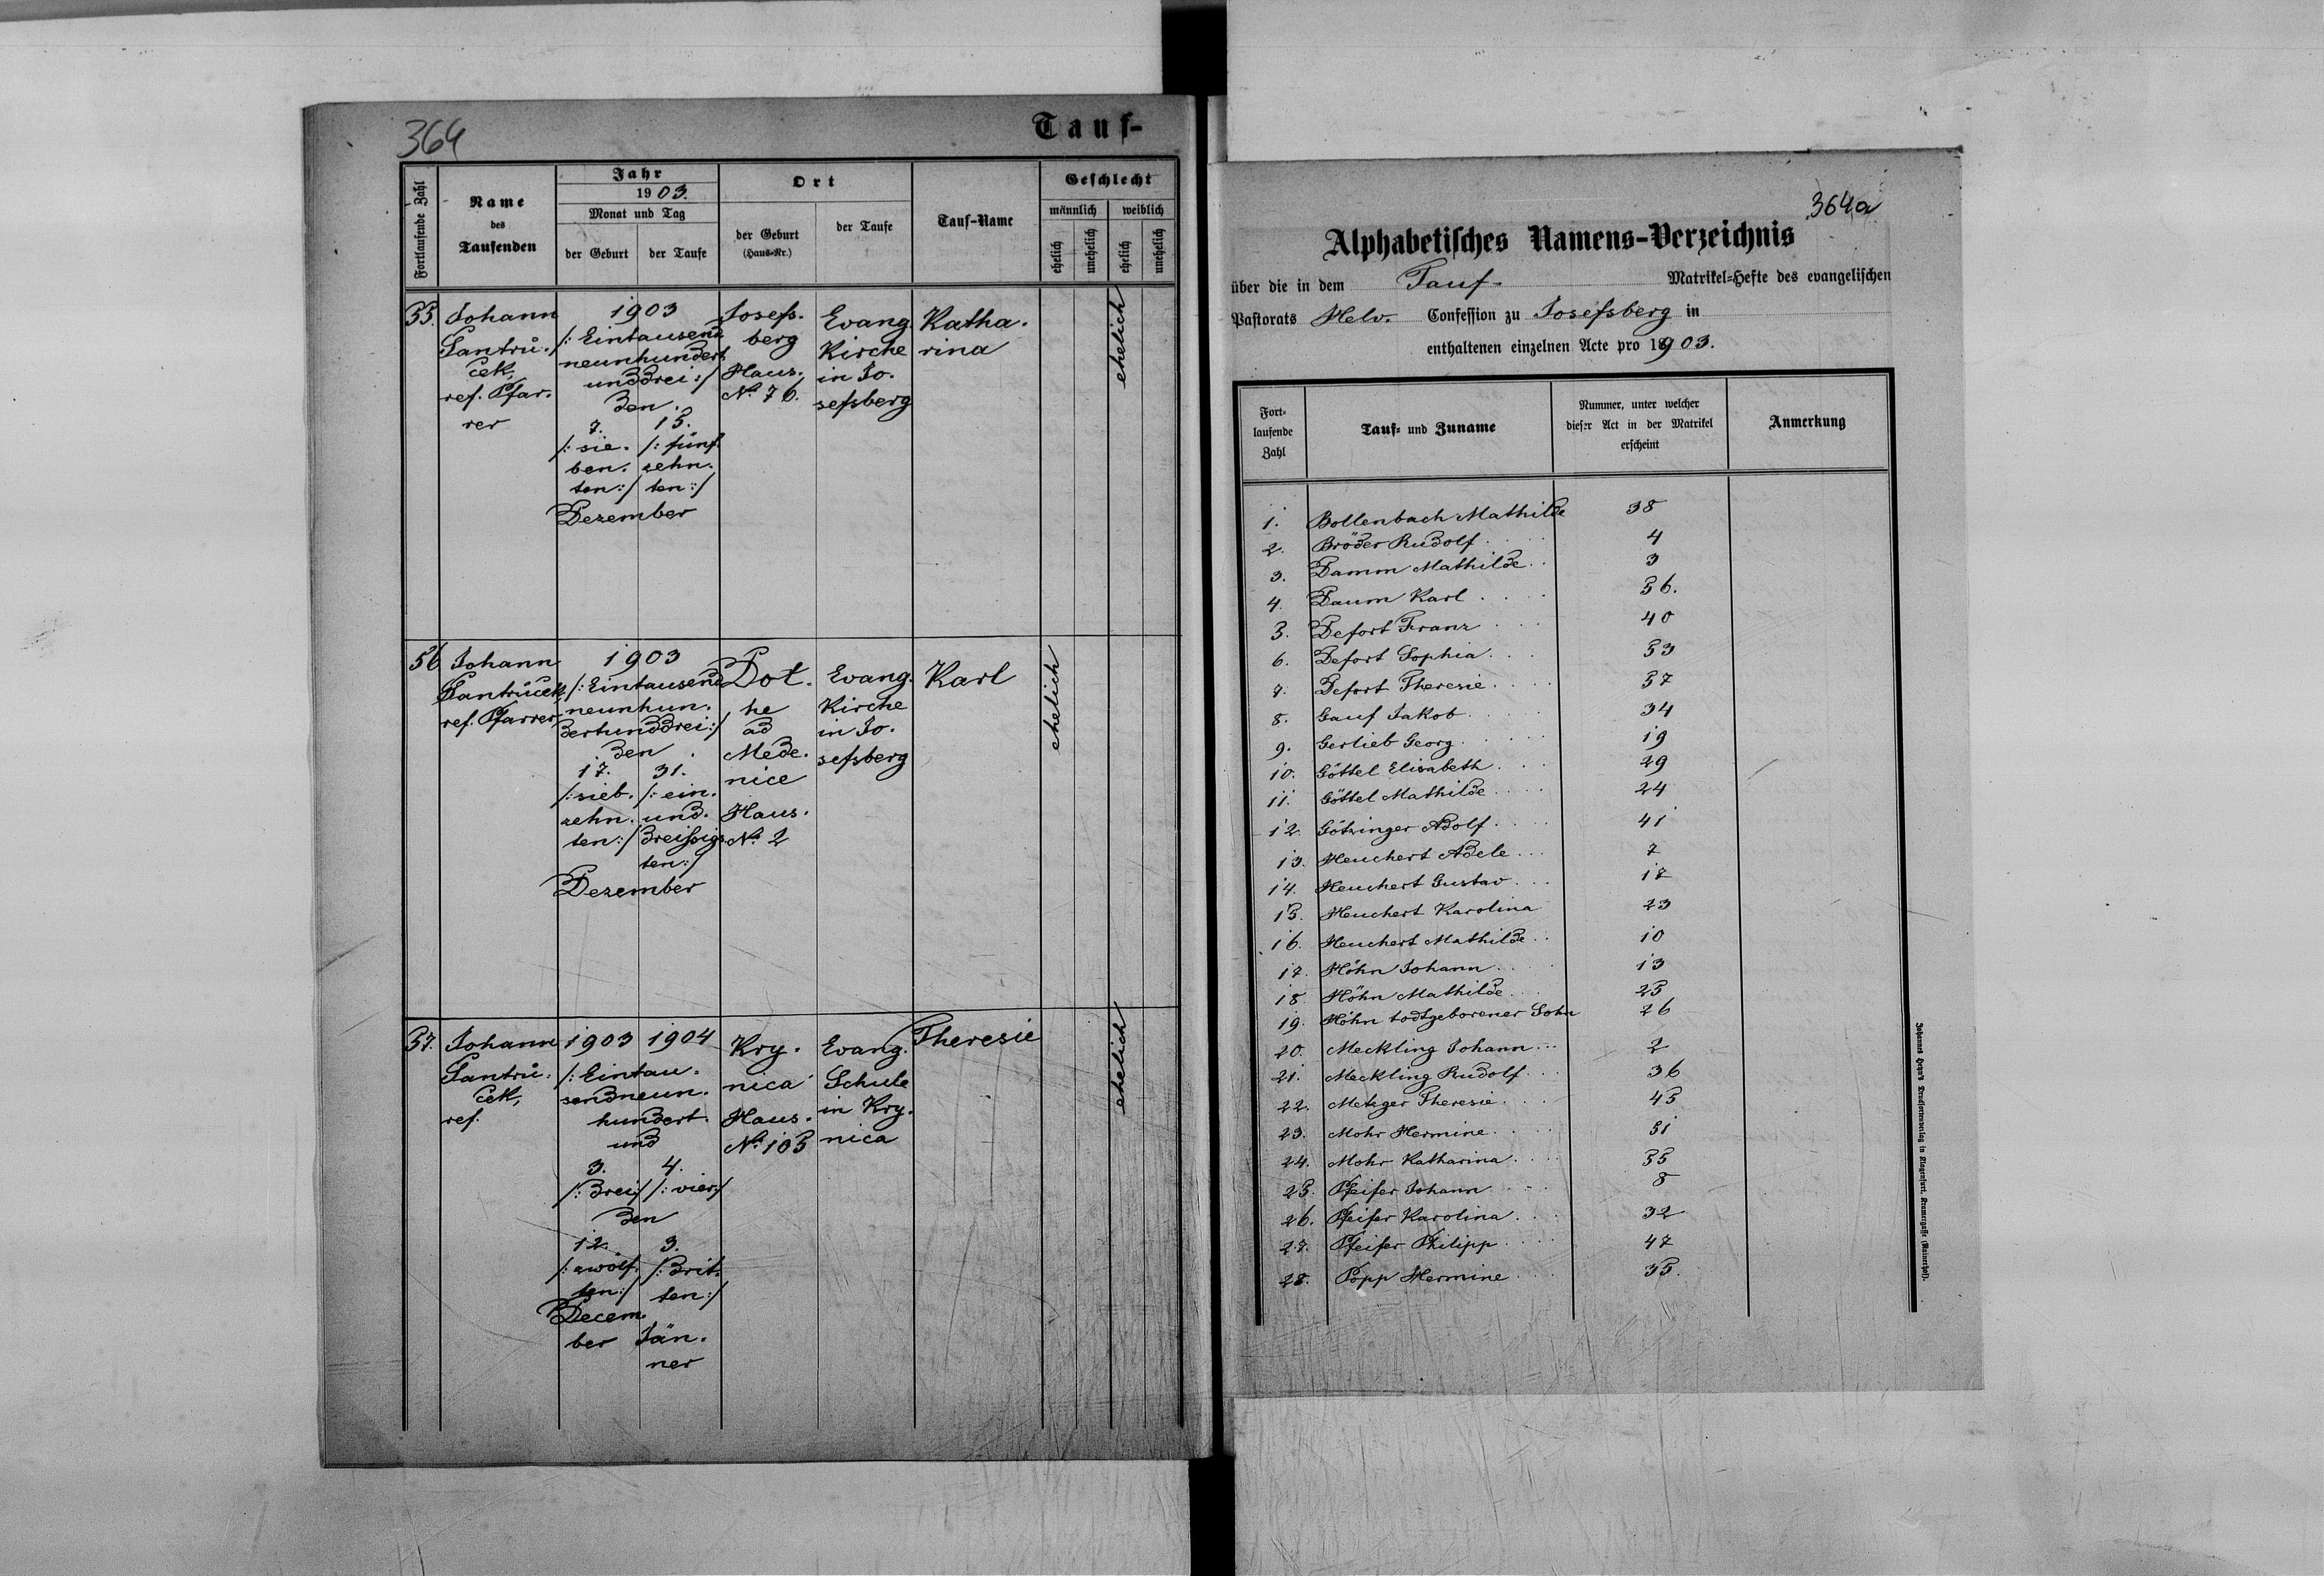 364
Tauf-
Fortlaufende Zahl
Name
des
Taufenden
Jahr
1903.
Monat und Tag
der Geburt
der Taufe
Ort
der Geburt
(Haus-Nr.)
der Taufe
Tauf-Name
Geschlecht
männlich
weiblich
ehelich
unehelich
ehelich
unehelich
55.
Johann
Santrů-
ček,
ref. Pfar-
rer
1903
/: Eintausend
neunhundert
unddrei :/
den
7.
/: sie-
ben-
ten :/
15.
/: fünf-
zehn-
ten :/
Dezember
Josefs-
berg
Haus-
No. 76.
Evang.
Kirche
in Jo-
sefsberg
Katha-
rina
ehelich
56
Johann
Santrůček,
ref. Pfarrer
1903
/: Eintausend
neunhun-
dertunddrei :/
den
17.
/: sieb-
zehn-
ten :/
31.
/: ein-
und-
dreißigs-
ten :/
Dezember
Dot-
he
ad
Mede-
nice
Haus-
No. 2
Evang.
Kirche
in Jo-
sefsberg
Karl
ehelich
57.
Johann
Santrů-
ček,
ref.
1903 1904
/: Eintau-
sendneun-
hundert
und
3.
/: drei :/
4.
/: vier :/
den
12.
/: zwölf-
ten :/
Decem-
ber
3.
/: drit-
ten :/
Jän-
ner
Kry-
nica
Haus-
No. 105
Evang.
Schule
in Kry-
nica
Theresie
ehelich
364a
Alphabetisches Namens-Verzeichnis
über die in dem Tauf- Matrikel-Hefte des evangelischen
Pastorats Helv. Confession zu Josefsberg in
enthaltenen einzelnen Acte pro 1903.
Fort-
laufende
Zahl
Tauf- und Zuname
Nummer, unter welcher
dieser Act in der Matrikel
erscheint
Anmerkung
1. Bollenbach Mathilde 38
2. Bröder Rudolf 4
3. Damm Mathilde 3
4. Daum Karl 56.
5. Defort Franz 40
6. Defort Sophia 53
7. Defort Theresie 57
8. Gauf Jakob 34
9. Gerlieb Georg 19
10. Göttel Elisabeth 29
11. Göttel Mathilde 24
12. Götzinger Adolf 41
13. Heuchert Adele 7
14. Heuchert Gustav 17
15. Heuchert Karolina 23
16. Heuchert Mathilde 10
17. Höhn Johann 13
18. Höhn Mathilde 25
19. Höhn todtgeborener Sohn 26
20. Meckling Johann 2
21. Meckling Rudolf 36
22. Metzger Theresie 45
23. Mohr Hermine 51
24. Mohr Katharina 55
25. Pfeifer Johann 8
26. Pfeifer Karolina 32
27. Pfeifer Philipp 47
28. Popp Hermine 35.
Johannes Heyn's Drucksortenverlag in Klagenfurt, Kramergasse (Rainerhof).